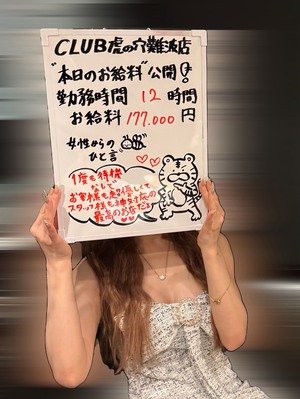 CLUB虎の穴難波店
"本日のお給料"公開!!
勤務時間 12時間
お給料 177.000円
女性からの
ひと言
1度も待機
なしで
お客様も優しくて
スタッフ様も神対応の
最高のお店だよ